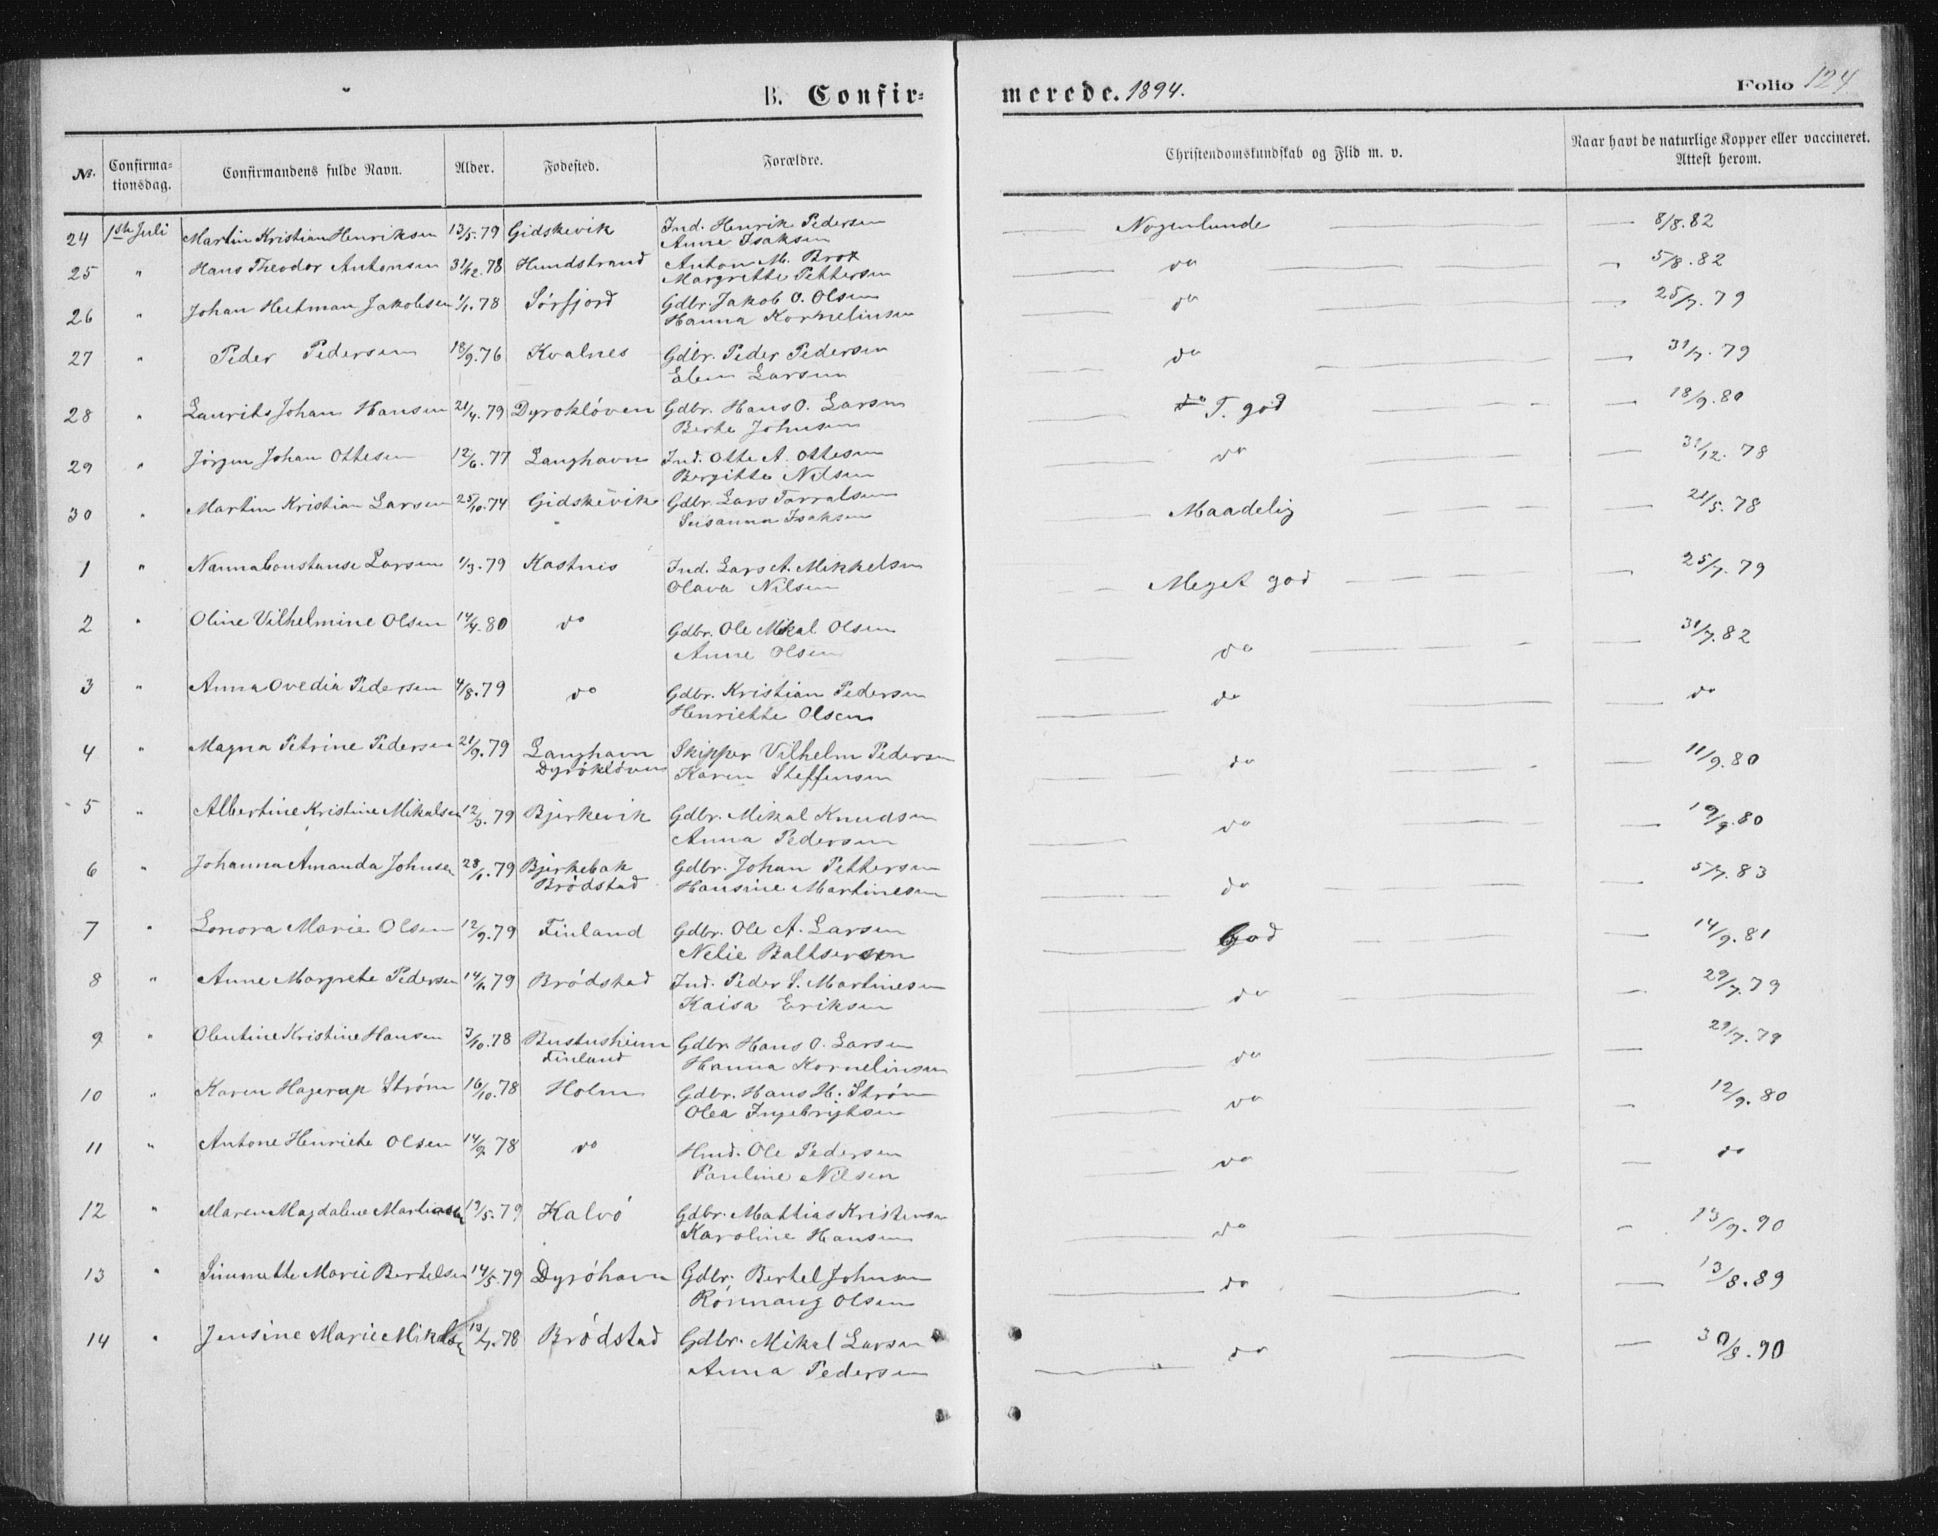 B. Confir= merede. 1894. Folio 124
№. Confirma= tionsdag. Confirmandens fulde Navn. Alder. Fødested. Forældre. Christendomskundskab og Flid m. v. Naar havt de naturlige Kopper eller vaccineret. Attest herom.
24 1ste Juli Martin Kristian Henriksen 13/5.79 Gidskevik Ind. Henrik Pedersen Nogenlunde 8/8.82
Anne Isaksen
25 " Hans Theodor Antonsen 31/12.78 Hundstrand Anton M. Brox do 5/8.82
Margrethe Pettersen
26 " Johan Heitman Jakobsen 1/1.78 Sørfjord Gdbr. Jakob O. Olsen do 25/7.79
Hanna Kornelinsen
27 " Peder Pedersen 18/9.76 Kvalnes Gdbr. Peder Pedersen do 31/7.79
Elen Larsen
28 " Laurits Johan Hansen 21/4.79 Dyrökløven Gdbr. Hans O. Larsen do T. god 18/9.80
Berte Johnsen
29 " Jørgen Johan Ottesen 12/6.77 Langhavn Ind. Otte A. Ottesen do 31/12.78
Bergitte Nilsen
30 " Martin Kristian Larsen 25/10.74 Gidskevik Gdbr. Lars Tarralsen Maadelig 21/5.78
Susanna Isaksen
1 " Nanna Constanse Larsen 1/3.79 Kastnes Ind. Lars A. Mikkelsen Meget god 25/7.79
Olava Nilsen
2 " Oline Vilhelmine Olsen 14/4.80 do Gdbr. Ole Mikal Olsen do 31/7.82
Anne Olsen
3 " Anna Ovedia Pedersen 4/8.79 do Gdbr. Kristian Pedersen do do
Henriette Olsen
4 " Magna Petrine Pedersen 21/9.79 Langhavn Skipper Vilhelm Pedersen do 11/9.80
Dyrökløven Karen Steffensen
5 " Albertine Kristine Mikalsen 12/3.79 Bjerkevik Gdbr. Mikal Knudsen do 19/9.80
Anna Pedersen
6 " Johanna Amanda Johnsen 28/1.79 Bjerkebak Gdbr. Johan Pettersen do 5/7.83
Brödstad Hansine Martinesen
7 " Lonora Marie Olsen 12/9.79 Finland Gdbr. Ole A. Larsen God 14/9.81
Nelie Baltsersen
8 " Anne Margrete Pedersen 14/1.79 Brödstad Ind. Peder S. Martinesen do 29/7.79
Kaisa Eriksen
9 " Olentine Kristine Hansen 3/10.78 Bustusheim Gdbr. Hans O. Larsen do 29/7.79
Finland Hanna Kornelinsen
10 " Karen Hagerup Strøm 16/10.78 Holm Gdbr. Hans H. Strøm do 12/9.80
Olea Ingebrigtsen
11 " Antone Henriete Olsen 14/9.78 do Hmd. Ole Pedersen do do
Pauline Nilsen
12 " Maren Magdalene Martinsen 19/5.79 Kalvö Gdbr. Mathias Kristensen do 13/9.90
Karoline Hansen
13 " Simonette Marie Bertelsen 14/5.79 Dyröhavn Gdbr. Bertel Johnsen do 13/8.89
Rönnaug Olsen
14 " Jensine Marie Mikalsen 13/7.78 Brödstad Gdbr. Mikal Larsen do 30/8.90
Anna Pedersen